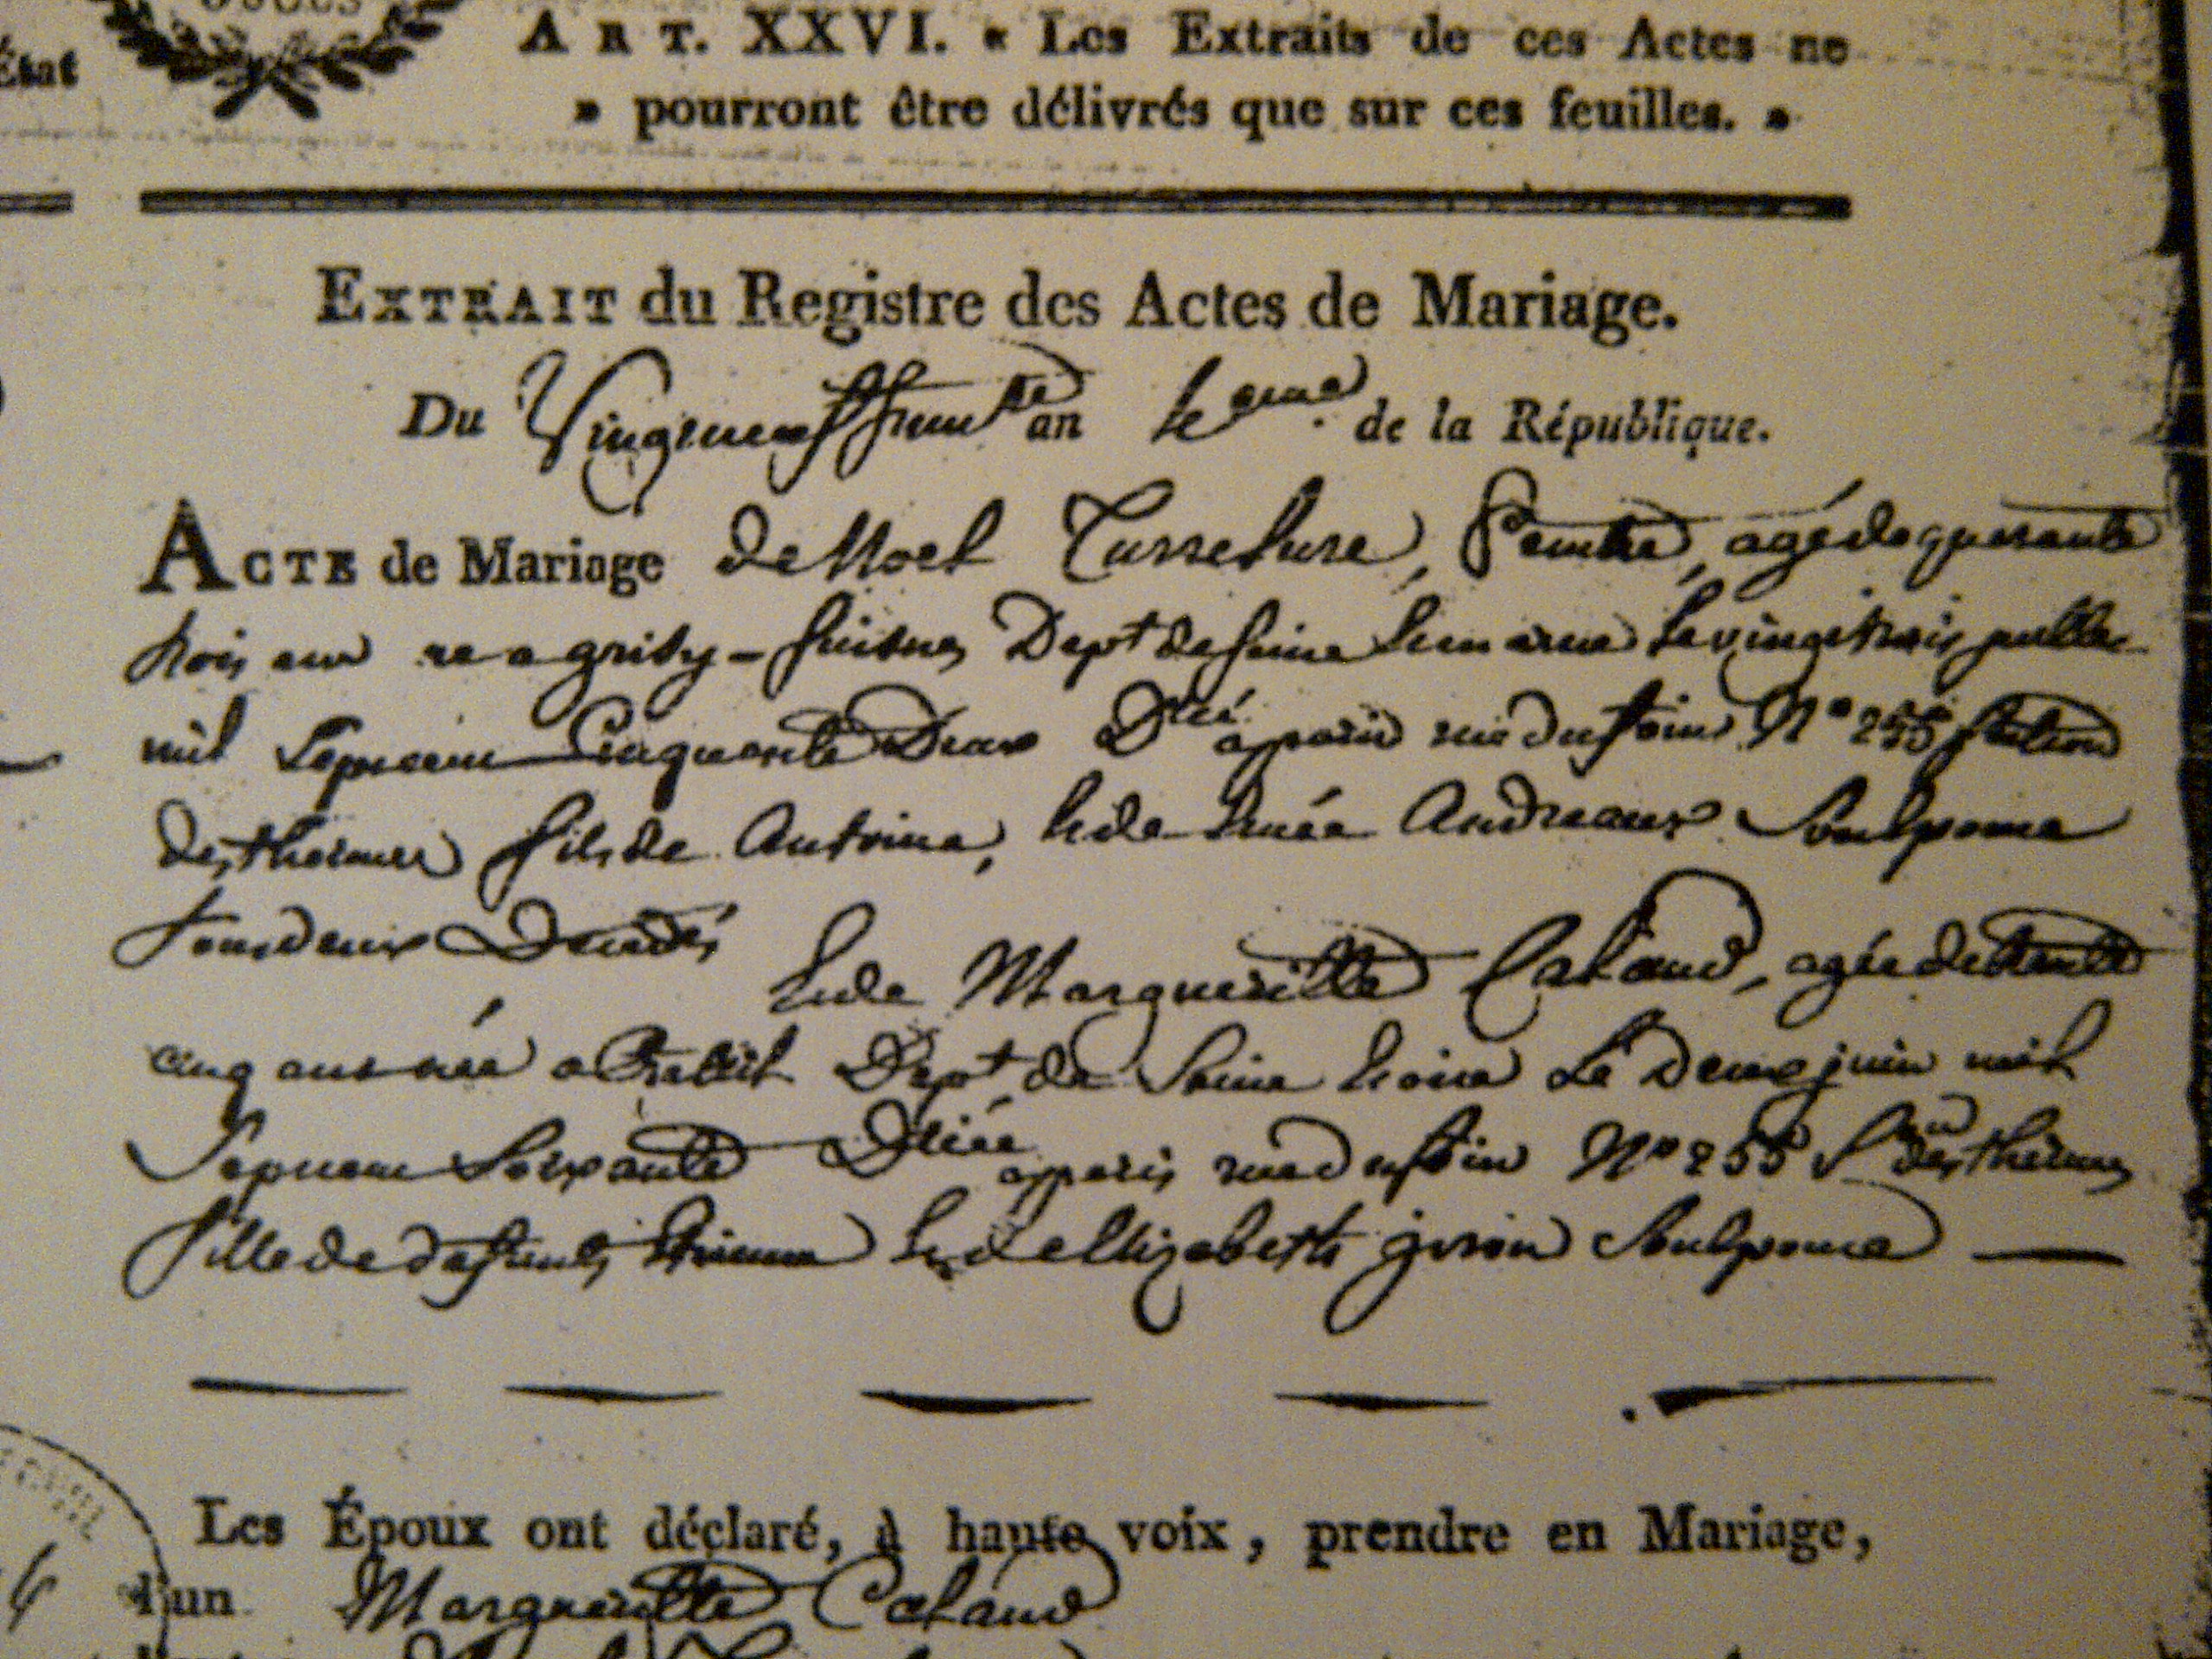 État
ART. XXVI. « Les Extraits de ces Actes ne
» pourront être délivrés que sur ces feuilles. »
EXTRAIT du Registre des Actes de Mariage.
Du Vingtneuf an 4eme de la République.
ACTE de Mariage de Noel Tusseture, Peintre, agé de quarante
trois ans né a grisy-suisnes Dept de Seine et marne le vingt trois juillet
mil Sepcent Cinquante Deux Dlié a paris rue du foin N° 255 section
des thermes fils de Antoine, et de Andreaux Son Epouse
tous deux Décédés
Et de Margueritte Calaud, agée de trente
cinq ans née a Dept de Saine Loire Le Deux juin mil
Sepcent Soixante Dliée a paris rue du foin N° 255 Son des thermes
fille de defunts et de Elizabeth Son Epouse
Les Époux ont déclaré, à haute voix, prendre en Mariage,
l'un Margueritte Calaud